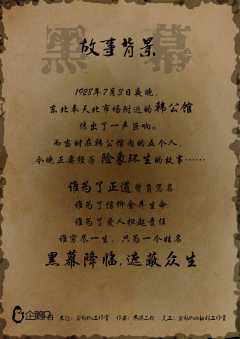 黑幕
故事背景
1928年7月3日夜晚，
东北奉天北市场附近的韩公馆
传出了一声巨响。
而当时在韩公馆内的五个人，
今晚正要经历 险象环生的故事……
谁为了正道背负恶名
谁为了信仰舍弃生命
谁为了爱人担起责任
谁穷尽一生，只为一个姓名
黑幕降临，遮蔽众生
企鹅